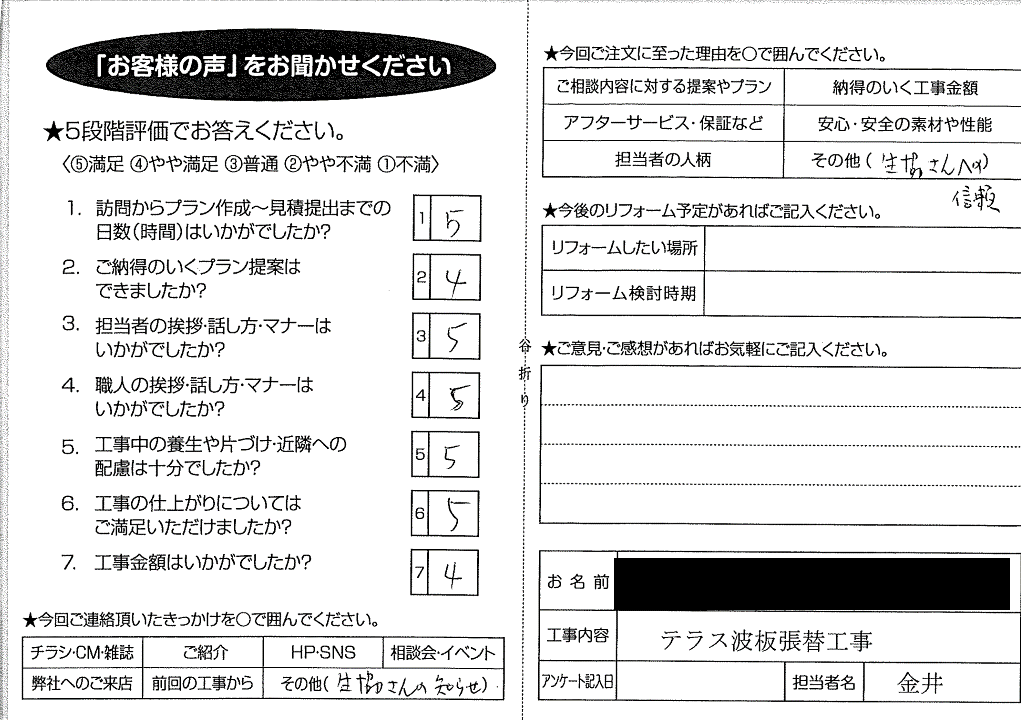 「お客様の声」をお聞かせください
★5段階評価でお答えください。
〈⑤満足 ④やや満足 ③普通 ②やや不満 ①不満〉
1. 訪問からプラン作成～見積提出までの
日数(時間)はいかがでしたか?
1 5
2. ご納得のいくプラン提案は
できましたか?
2 4
3. 担当者の挨拶・話し方・マナーは
いかがでしたか?
3 5
4. 職人の挨拶・話し方・マナーは
いかがでしたか?
4 5
5. 工事中の養生や片づけ・近隣への
配慮は十分でしたか?
5 5
6. 工事の仕上がりについては
ご満足いただけましたか?
6 5
7. 工事金額はいかがでしたか?
7 4
★今回ご連絡頂いたきっかけを○で囲んでください。
チラシ・CM・雑誌 ご紹介 HP・SNS 相談会・イベント
弊社へのご来店 前回の工事から その他(生協さんの知らせ)
谷折り
★今回ご注文に至った理由を○で囲んでください。
ご相談内容に対する提案やプラン 納得のいく工事金額
アフターサービス・保証など 安心・安全の素材や性能
担当者の人柄 その他(生協さんへの)
信頼
★今後のリフォーム予定があればご記入ください。
リフォームしたい場所
リフォーム検討時期
★ご意見・ご感想があればお気軽にご記入ください。
お名前
工事内容 テラス波板張替工事
アンケート記入日 担当者名 金井